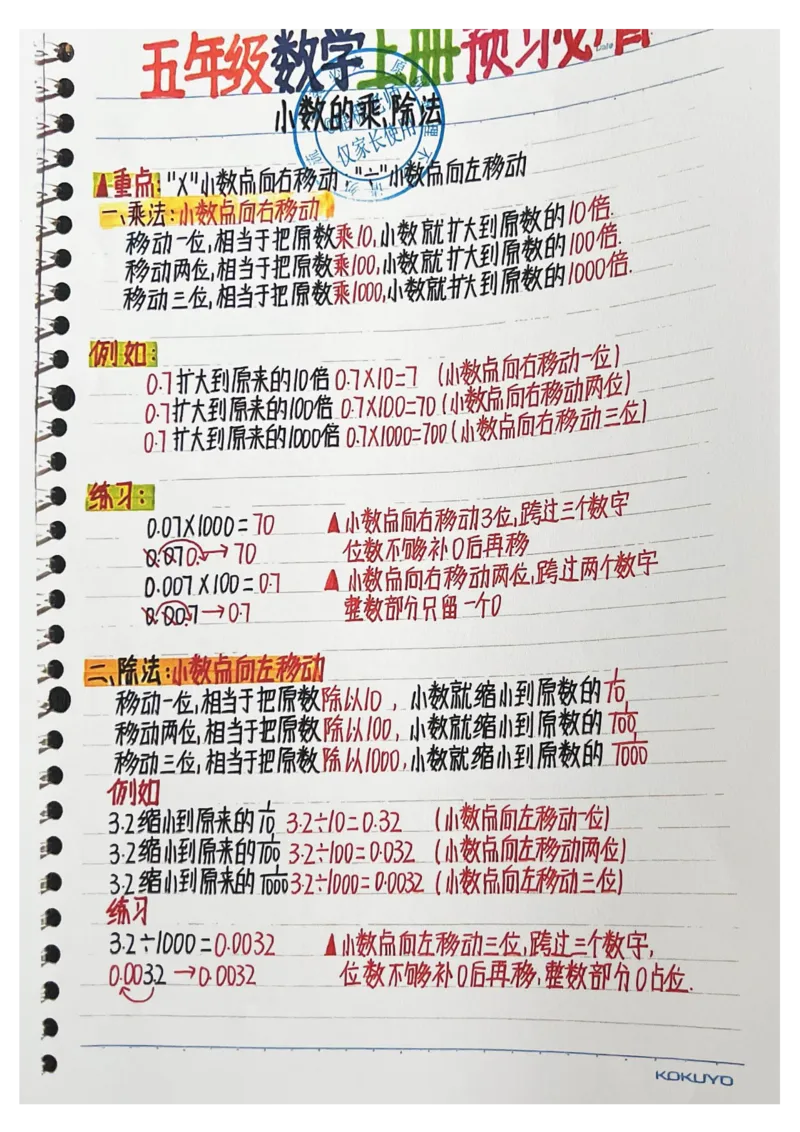 五年级数学上册预习必看
小数的乘、除法
仅家长使用
▲重点:"X"小数点向右移动,"÷"小数点向左移动
一、乘法:小数点向右移动
移动一位,相当于把原数乘10,小数就扩大到原数的10倍.
移动两位,相当于把原数乘100,小数就扩大到原数的100倍.
移动三位,相当于把原数乘1000,小数就扩大到原数的1000倍.
例如:
0.7扩大到原来的10倍 0.7X10=7 (小数点向右移动一位)
0.7扩大到原来的100倍 0.7X100=70(小数点向右移动两位)
0.7扩大到原来的1000倍 0.7X1000=700(小数点向右移动三位)
练习:
0.07X1000=70 ▲小数点向右移动3位,跨过三个数字
0.070.→70 位数不够补0后再移
0.007X100=0.7 ▲小数点向右移动两位,跨过两个数字
0.00.7→0.7 整数部分只留一个0
二、除法:小数点向左移动
移动一位,相当于把原数除以10,小数就缩小到原数的1/10,
移动两位,相当于把原数除以100,小数就缩小到原数的1/100,
移动三位,相当于把原数除以1000,小数就缩小到原数的1/1000
例如
3.2缩小到原来的1/10 3.2÷10=0.32 (小数点向左移动一位)
3.2缩小到原来的1/100 3.2÷100=0.032 (小数点向左移动两位)
3.2缩小到原来的1/1000 3.2÷1000=0.0032 (小数点向左移动三位)
练习
3.2÷1000=0.0032 ▲小数点向左移动三位,跨过三个数字,
0.003.2→0.0032 位数不够补0后再移,整数部分0占位.
KOKUYO